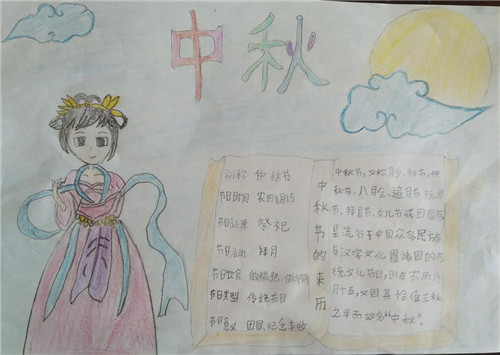 中秋
别称 仲秋节
节日时间 农历8月15
节日起源 祭祀
节日活动 拜月
节日饮食
节日类型 传统节日
节日意义 团圆纪念丰收
中秋节的来历
中秋节,又称月夕、秋节、仲
秋节、八月会、追月节、玩月
节、拜月节、女儿节或团圆节
是流行于中国众多民族
与汉字文化圈诸国的传
统文化节日,时在农历八
月十五;因其恰值三秋
之半而故名“中秋”。